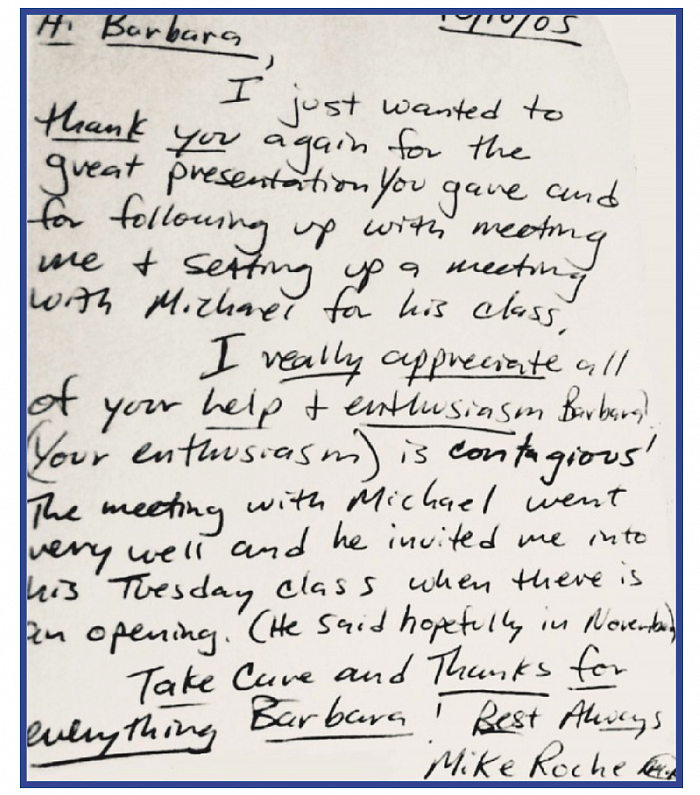 Hi Barbara,
10/10/05
I just wanted to
thank you again for the
great presentation You gave and
for following up with meeting
me + setting up a meeting
with Michael for his class.
I really appreciate all
of your help + enthusiasm Barbara!
(Your enthusiasm) is contagious!
The meeting with Michael went
very well and he invited me into
his Tuesday class when there is
an opening. (He said hopefully in November)
Take Care and Thanks for
everything Barbara! Best Always
Mike Roche